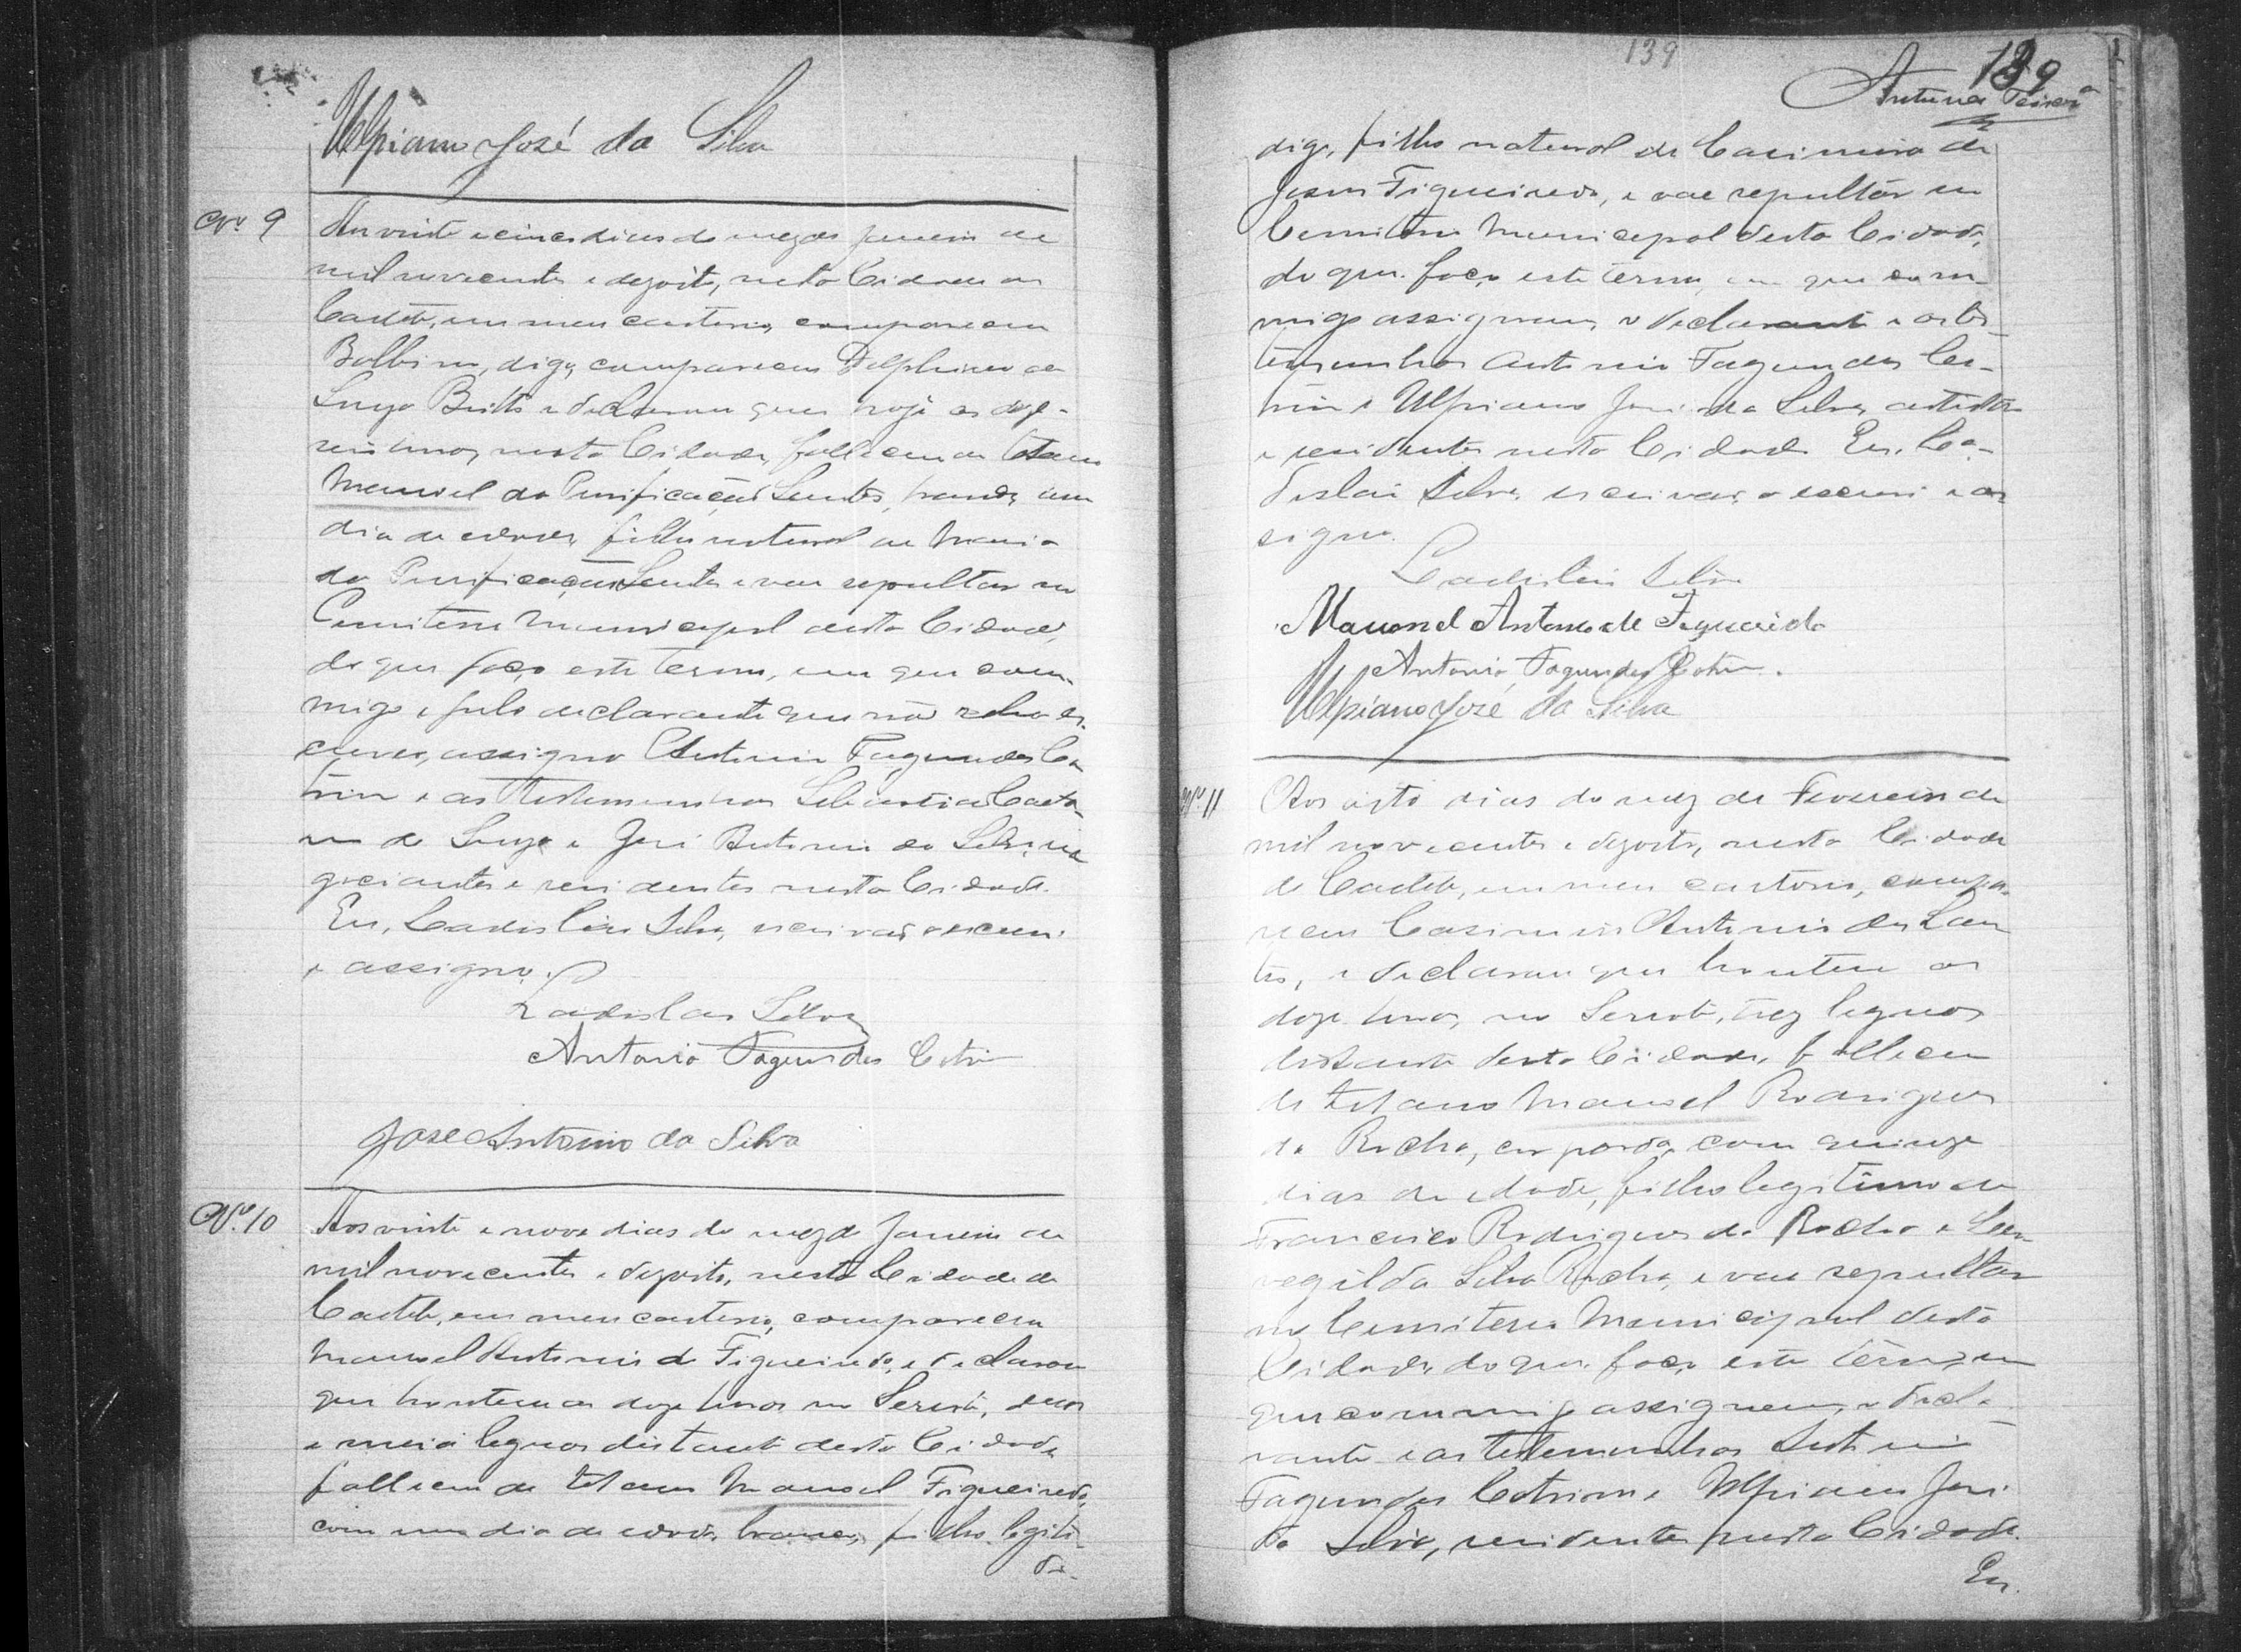 Ulpiano José da Silva
Nº 9
Aos vinte e cinco dias do mez de Janeiro de
mil novecentos e dezoito, nesta Cidade de
Caeteté, em meu cartorio, compareceu
Balbino, digo, compareceu Delphino de
Souza Britto e declarou que hoje as deze-
seis horas, nesta Cidade, falleceu de tetano
Manoel da Purificação Santos, branco, um
dia de edade, filho natural de Maria
da Purificação Santos e vae sepultar no
Cemiterio Municipal desta Cidade,
do que faço este termo, em que com-
migo e pelo declarante que não sabe es-
crever, assigna Antonio Fagundes Co-
trim e as testemunhas Caeta-
no de Souza e José Antonio da Silva, ne-
gociantes e residentes nesta Cidade.
Eu, Ladislau Silva, escrivão o escrevi
e assigno.
Ladislau Silva
Antonio Fagundes Cotrim
José Antonio da Silva
Nº 10
Aos vinte e nove dias do mez de Janeiro de
mil novecentos e dezoito, nesta Cidade de
Caeteté, em meu cartorio, compareceu
Manoel Antonio de Figueiredo, e declarou
que hontem as doze horas no , duas
e meia leguas distante desta Cidade
falleceu de tetano Manoel Figueiredo,
com um dia de edade, branco, filho legiti-
di-
139
139
Antunes Teixeira
digo, filho natural de Casimira de
Jesus Figueiredo, e vae sepultar no
Cemiterio Municipal desta Cidade,
do que faço este termo, em que com-
migo assignam, o declarante e as tes-
temunhas Antonio Fagundes Co-
trim e Ulpiano José da Silva, artistas
e residentes nesta Cidade. Eu, La-
dislau Silva, escrivão, o escrevi e as-
signo.
Ladislau Silva
Manoel Antonio de Figueiredo
Antonio Fagundes Cotrim.
Ulpiano José da Silva
Nº 11
Aos oito dias do mez de Fevereiro de
mil novecentos e dezoito, nesta Cidade
de Caeteté, em meu cartorio, compa-
receu Casimiro Antonio dos San-
tos, e declarou que hontem as
doze horas, no , trez leguas
distante desta Cidade, falleceu
de tetano Manoel Rodrigues
da Rocha, cor parda, com quinze
dias de edade, filho legitimo de
Francisco Rodrigues da Rocha e
Silva Rocha, e vae sepultar
no Cemiterio Municipal desta
Cidade, do que faço este termo, em
que commigo assignam, o decla-
rante e as testemunhas Antonio
Fagundes Cotrim e Ulpiano José
da Silva, residentes nesta Cidade.
Eu.